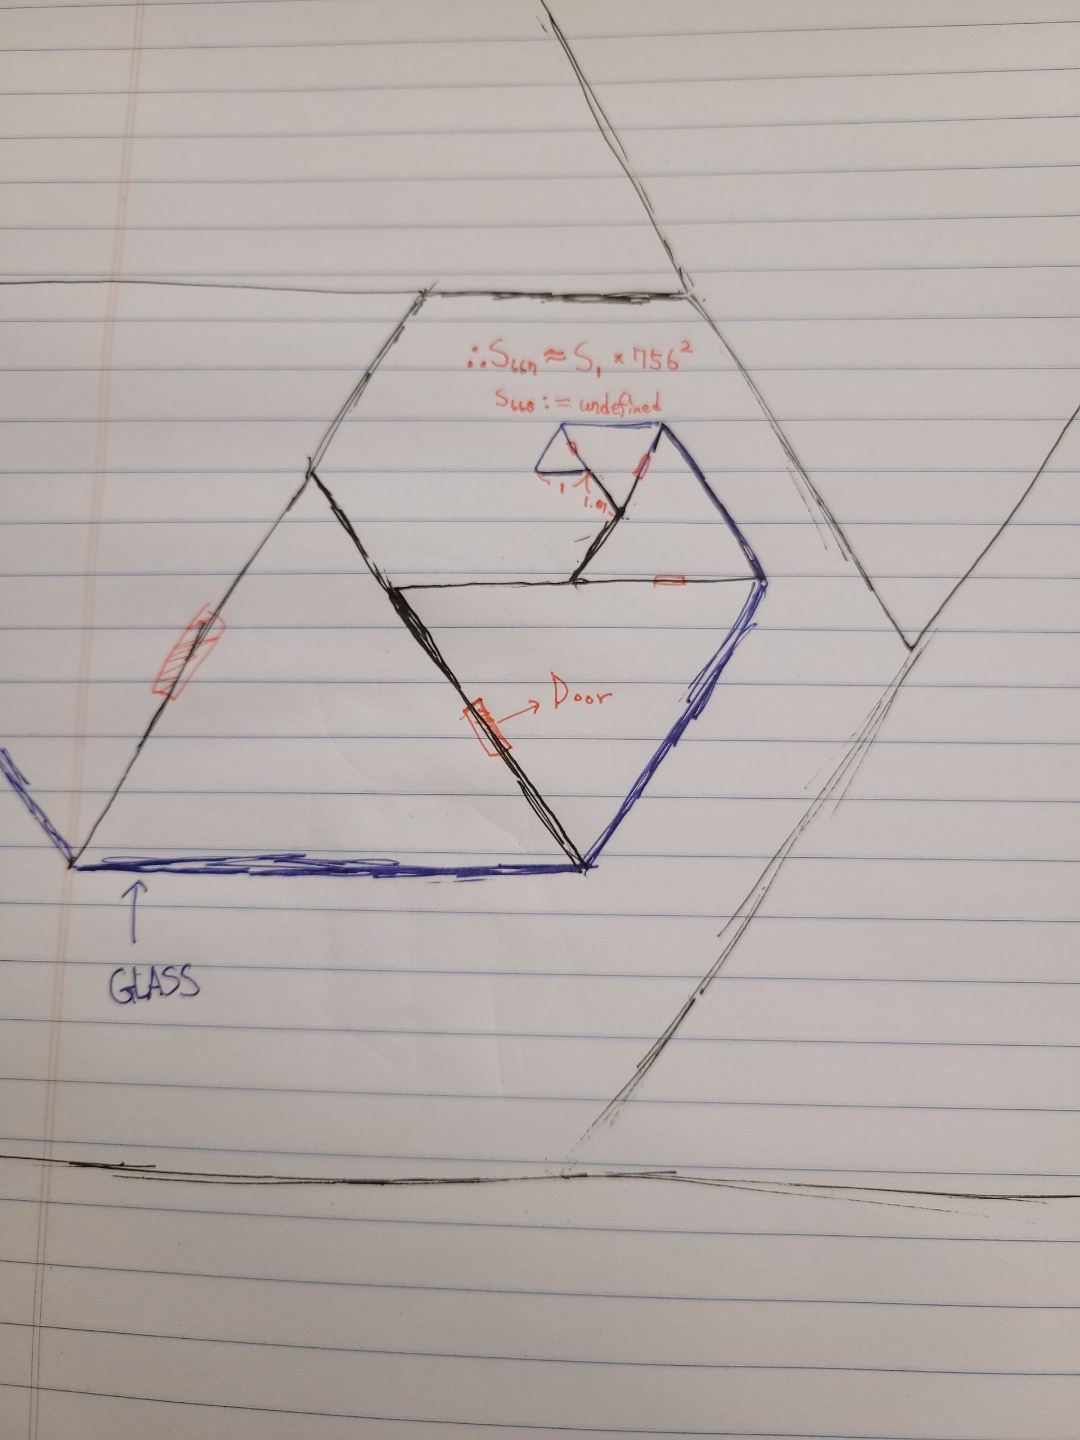 ∴S₆₆₇ ≈ S₁ × 756²
S₆₆₈ := undefined
1
Door
GLASS